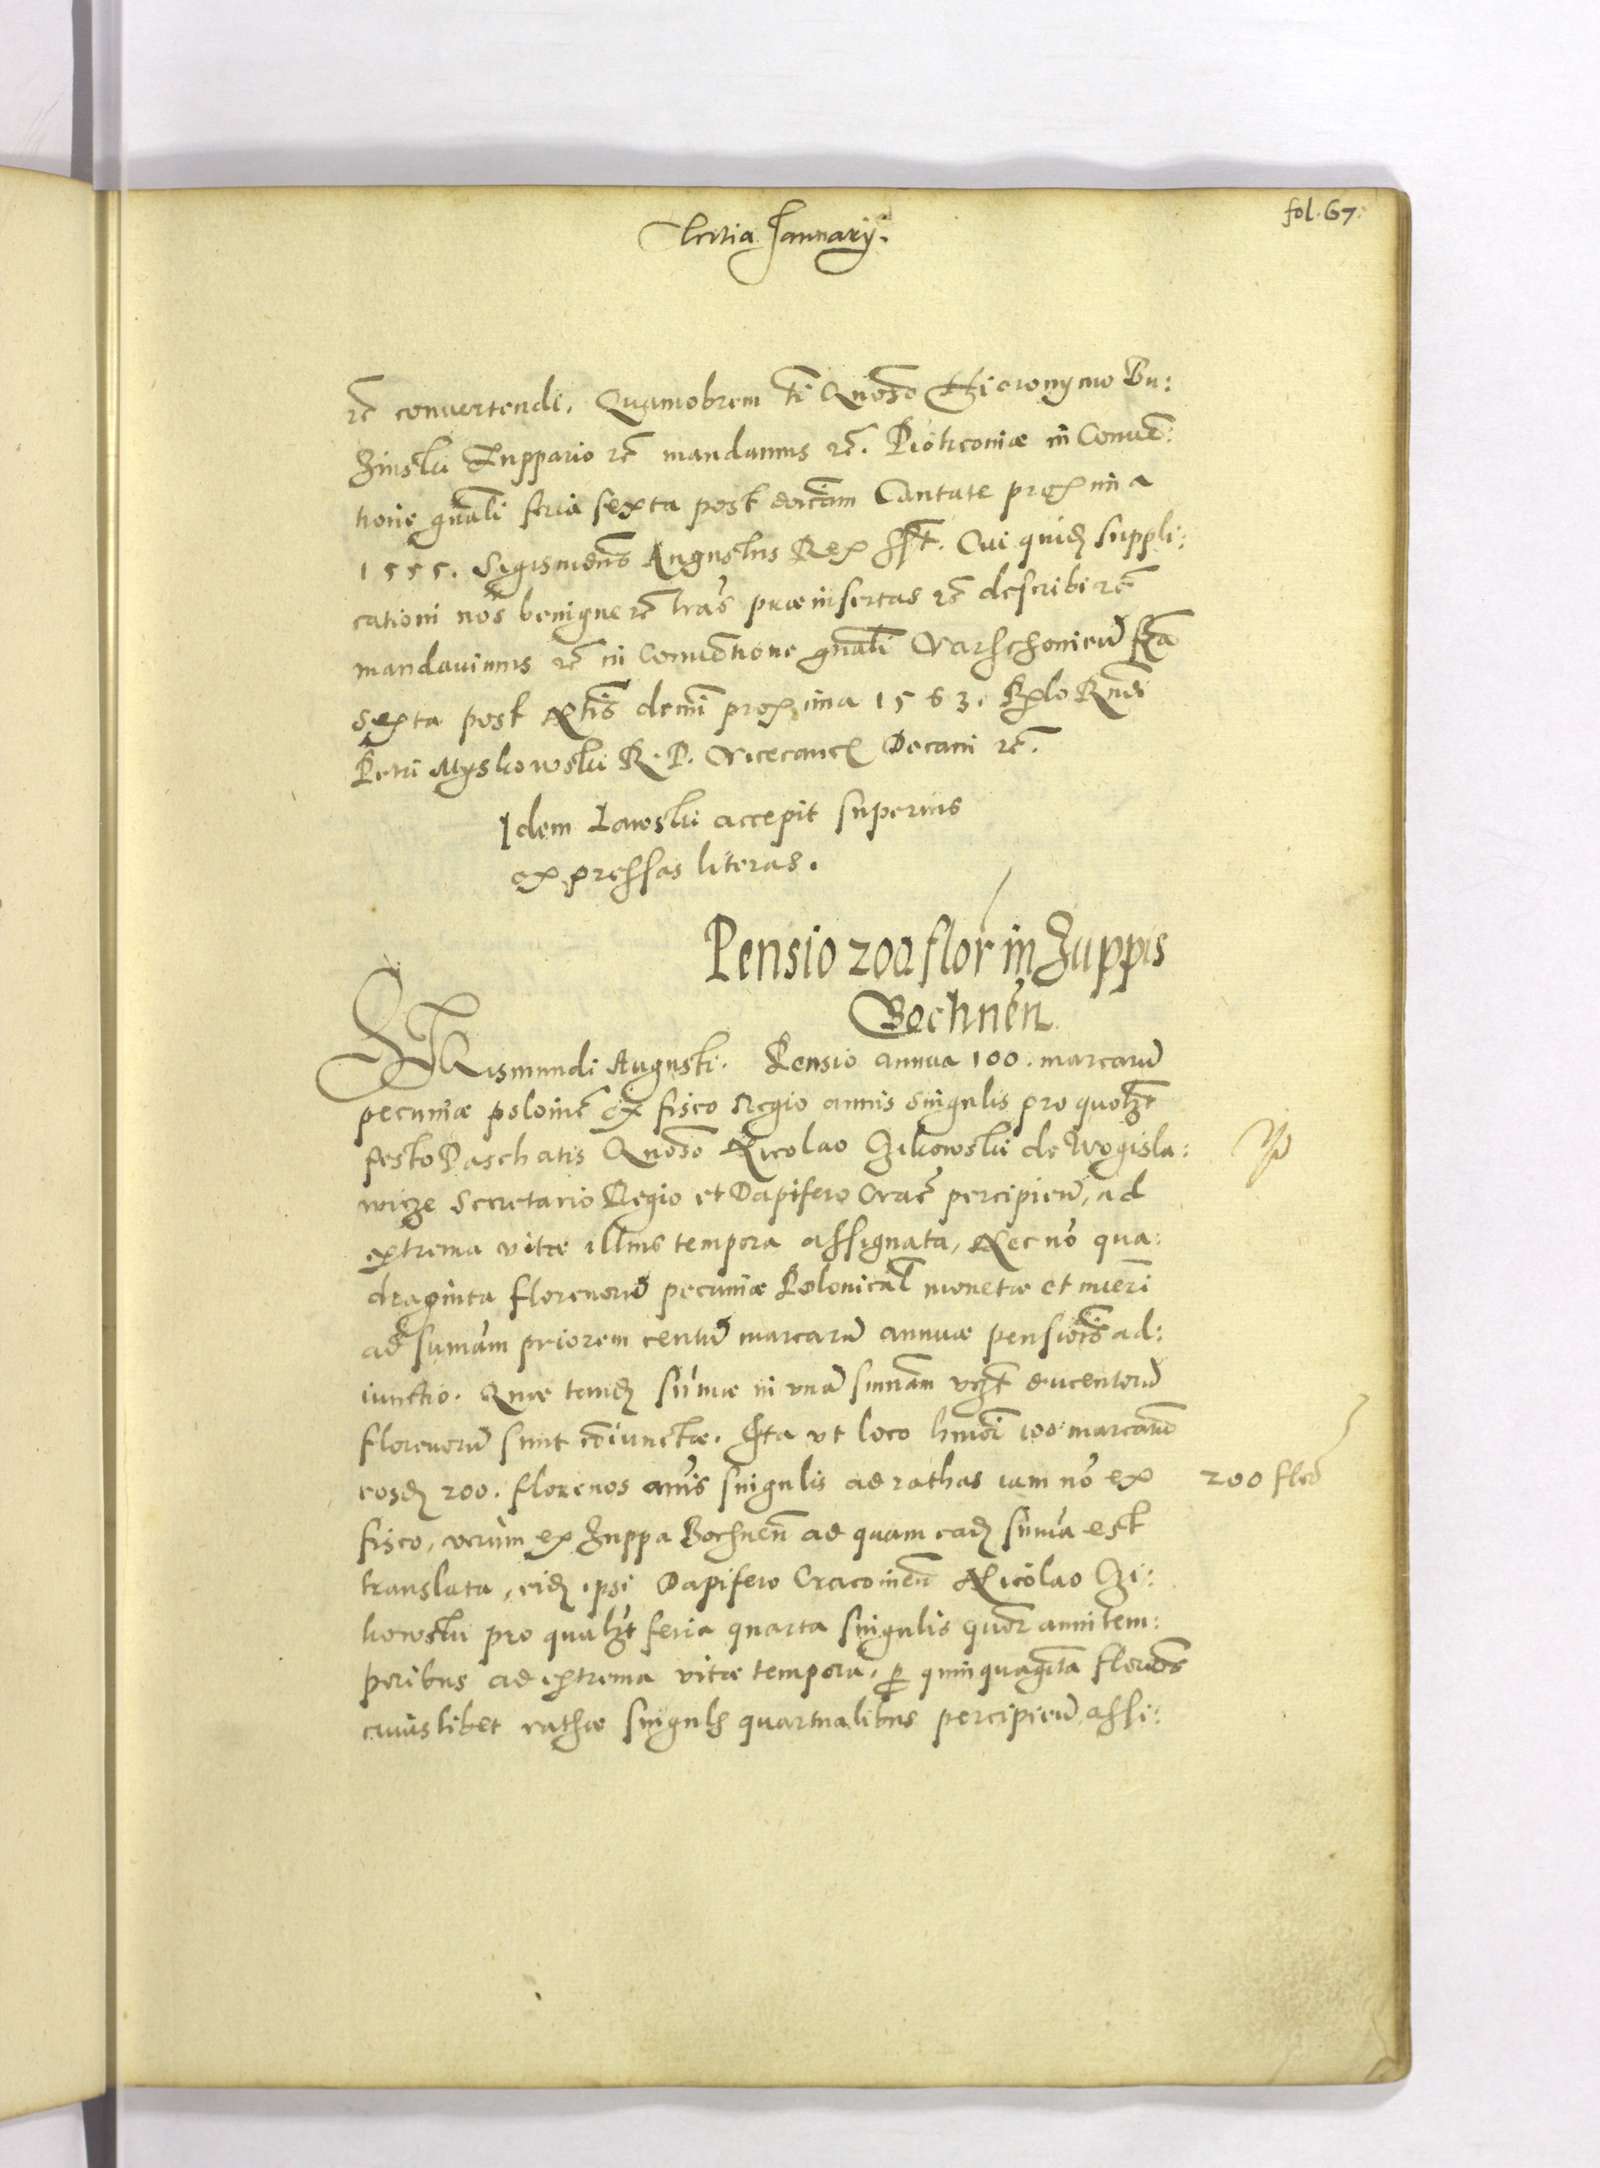 fol. 67.
Tertia January.
rc̄ conuertendi. Quamobrem tı̄ Gnoso Hieronymo Bu:
zinski Zuppario rc̄ mandamus rc̄. Piotrconiæ in Conuē:
tione gnāli feria sexta post dnicam Cantate proxima
1555. Sigismūs Augustus Rex sspt. Cui quidē suppli:
cationi nos benigne rc̄ lrās præinsertas rc̄ describi rc̄
mandauimus rc̄ in Conuētione gnāli Varschouieñ fria
sexta post Xtis domi proxima 1563. Rlo Rndi
Petri Myskowski R. P. Vicecanc Decani rc̄.
Idem Lawski accepit superius
expressas literas.
Pensio 200 flor in Zuppis
Bochnen̄
Sigismundi Augusti. Pensio annua 100. marcarū
pecuniæ polonic̄ ex fisco Regio annis singulis pro quolzt
festo Paschatis Gnoso Nicolao Zikowski de Wogisla:
wicze Secretario Regio et Dapifero Crac̄ percipien̄, ad
extrema vitæ illius tempora assignata, Nec nō qua:
draginta florenorū pecuniæ Polonical monetæ et nueri
ad sumām priorem centū marcarū annuæ pensiōis ad:
iunctio. Quæ tandē sum̄æ in vnā sumām vizt ducentorū
florenorū sunt coniunctæ. Ita vt loco hmoi 100 marcarū
eosdē 200. florenos annis singulis ad rathas iam nō ex
fisco, verum ex Zuppa Bochnen̄ ad quam eadē sum̄a est
translata, eidē ipsi Dapifero Cracouien̄ Nicolao Zi:
kowski pro qualzt feria quarta singulis quor anni tem:
poribus ad extrema vitæ tempora, p quinquaginta florenos
cuiuslibet rathæ singulis quartualibus percipien̄ assi:
200 flor